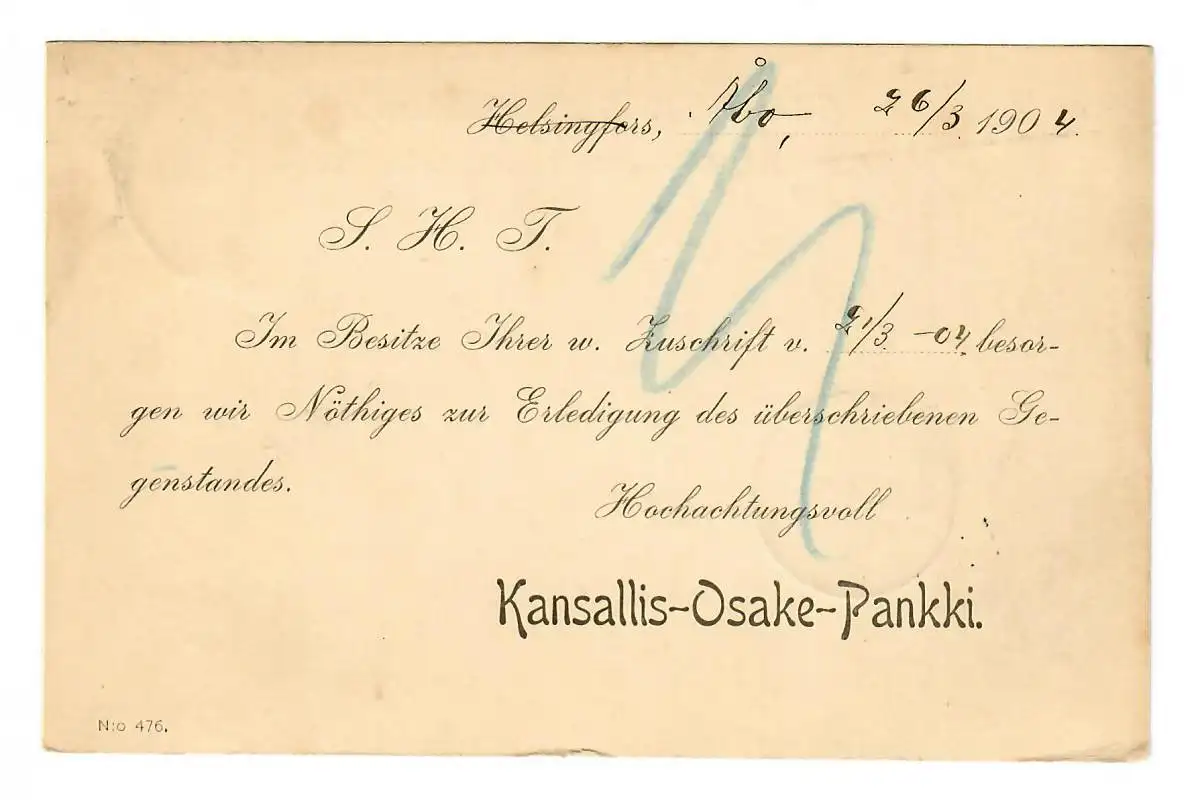 Helsingfors, Åbo, 26/3 1904.
S. H. T.
Im Besitze Ihrer w. Zuschrift v. 21/3 -04 besor-
gen wir Nöthiges zur Erledigung des überschriebenen Ge-
genstandes.
Hochachtungsvoll
Kansallis-Osake-Pankki.
N:o 476.